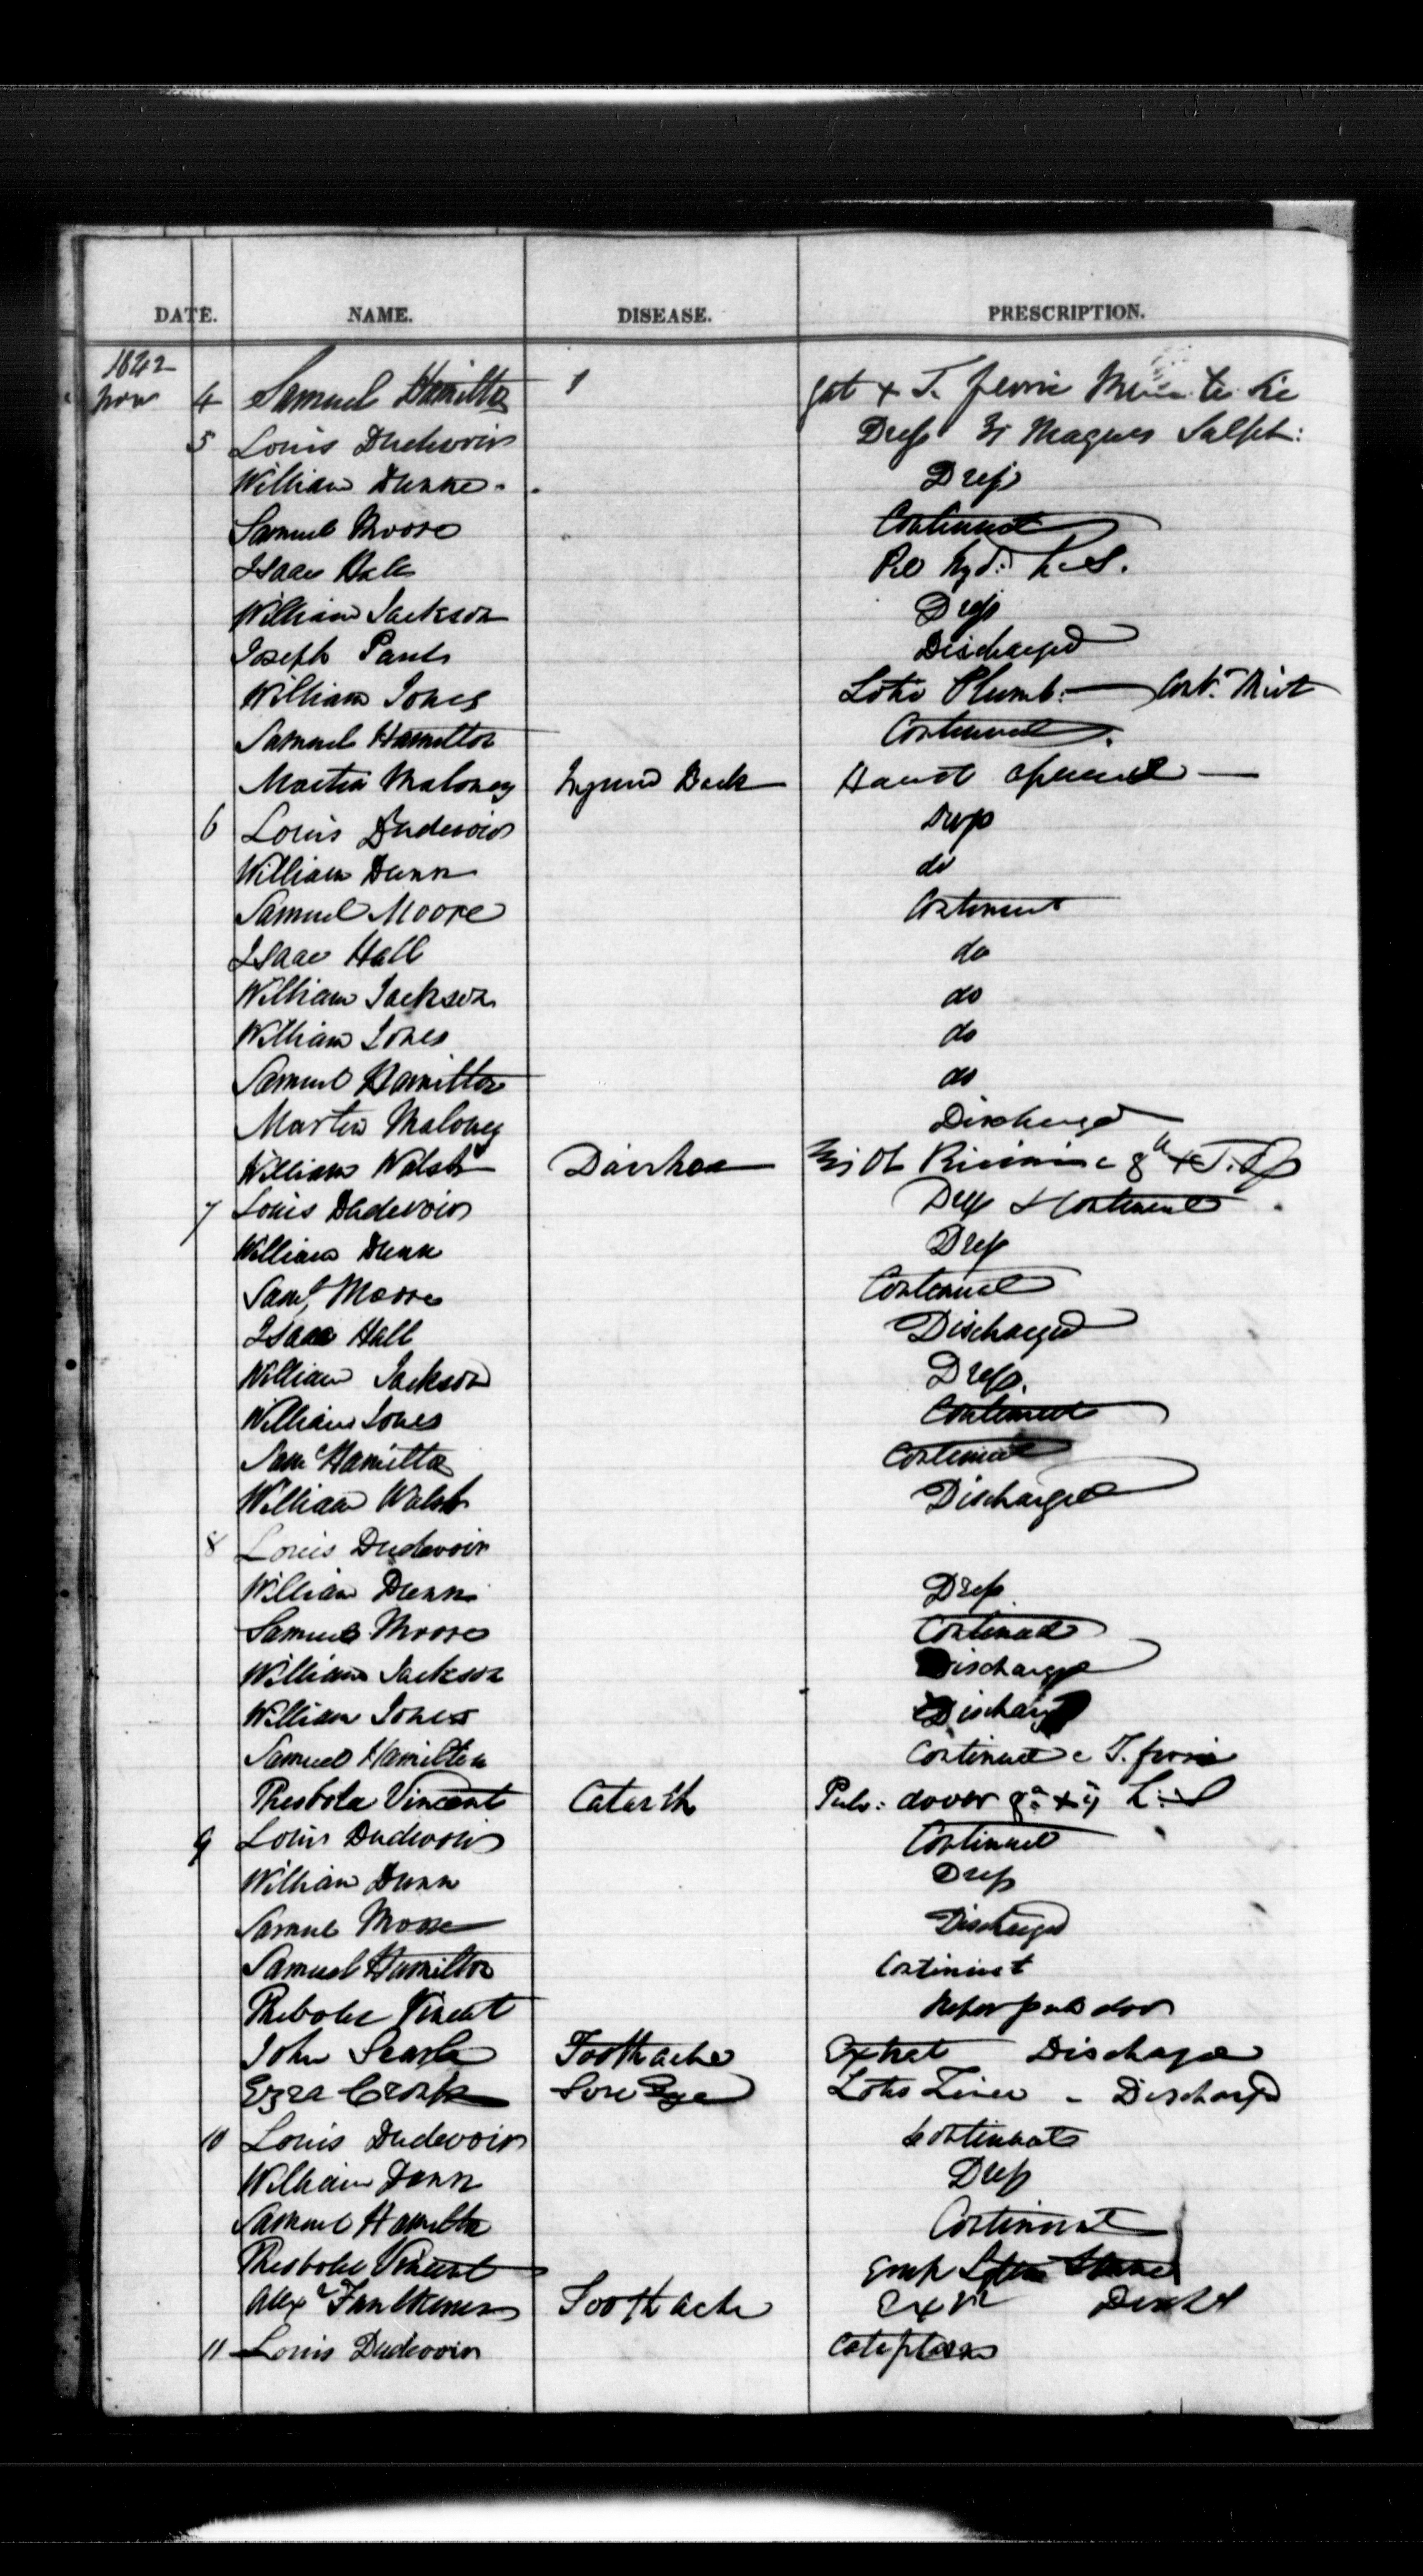 DATE. NAME. DISEASE. PRESCRIPTION.
1842
Nov 4 Samuel Hamilton gtt x T. ferri Mur. ter die
5 Louis Dudevoir Dress ℥i Magnes Sulph:
William Dunne Dress
Samuel Moore Continued
Isaac Hall Pil Hyd: h.S.
William Jackson Dress
Joseph Pauls Discharged
William Jones Lotio Plumb: Cont. Mist
Samuel Hamilton Continued
Martin Maloney Injured Back Haust aperient
6 Louis Dudevoir Dress
William Dunn do
Samuel Moore Continued
Isaac Hall do
William Jackson do
William Jones do
Samuel Hamilton do
Martin Maloney Discharged
William Walsh Diarrhea ℥i Ol Ricini c gtt x T. Op
7 Louis Dudevoir Dress & Continued
William Dunn Dress
Saml Moore Continued
Isaac Hall Discharged
William Jackson Dress.
William Jones Continued
Sam Hamilton Continued
William Walsh Discharged
8 Louis Dudevoir
William Dunn Dress
Samuel Moore Continued
William Jackson Discharged
William Jones Discharged
Samuel Hamilton Continued c T. ferri
Vincent Catarrh Pulv: dover gr xij h:S
9 Louis Dudevoir Continued
William Dunn Dress
Samuel Moore Discharged
Samuel Hamilton Continued
Vincent pulv dov
John Searle Toothache Extract Discharged
Ezra Cronk Sore Eye Lotio Zinci - Discharged
10 Louis Dudevoir Continued
William Dunn Dress
Samuel Hamilton Continued
Vincent Emp
Alexr Faulkner Toothache Extr Disch
11 Louis Dudevoir Cataplasm